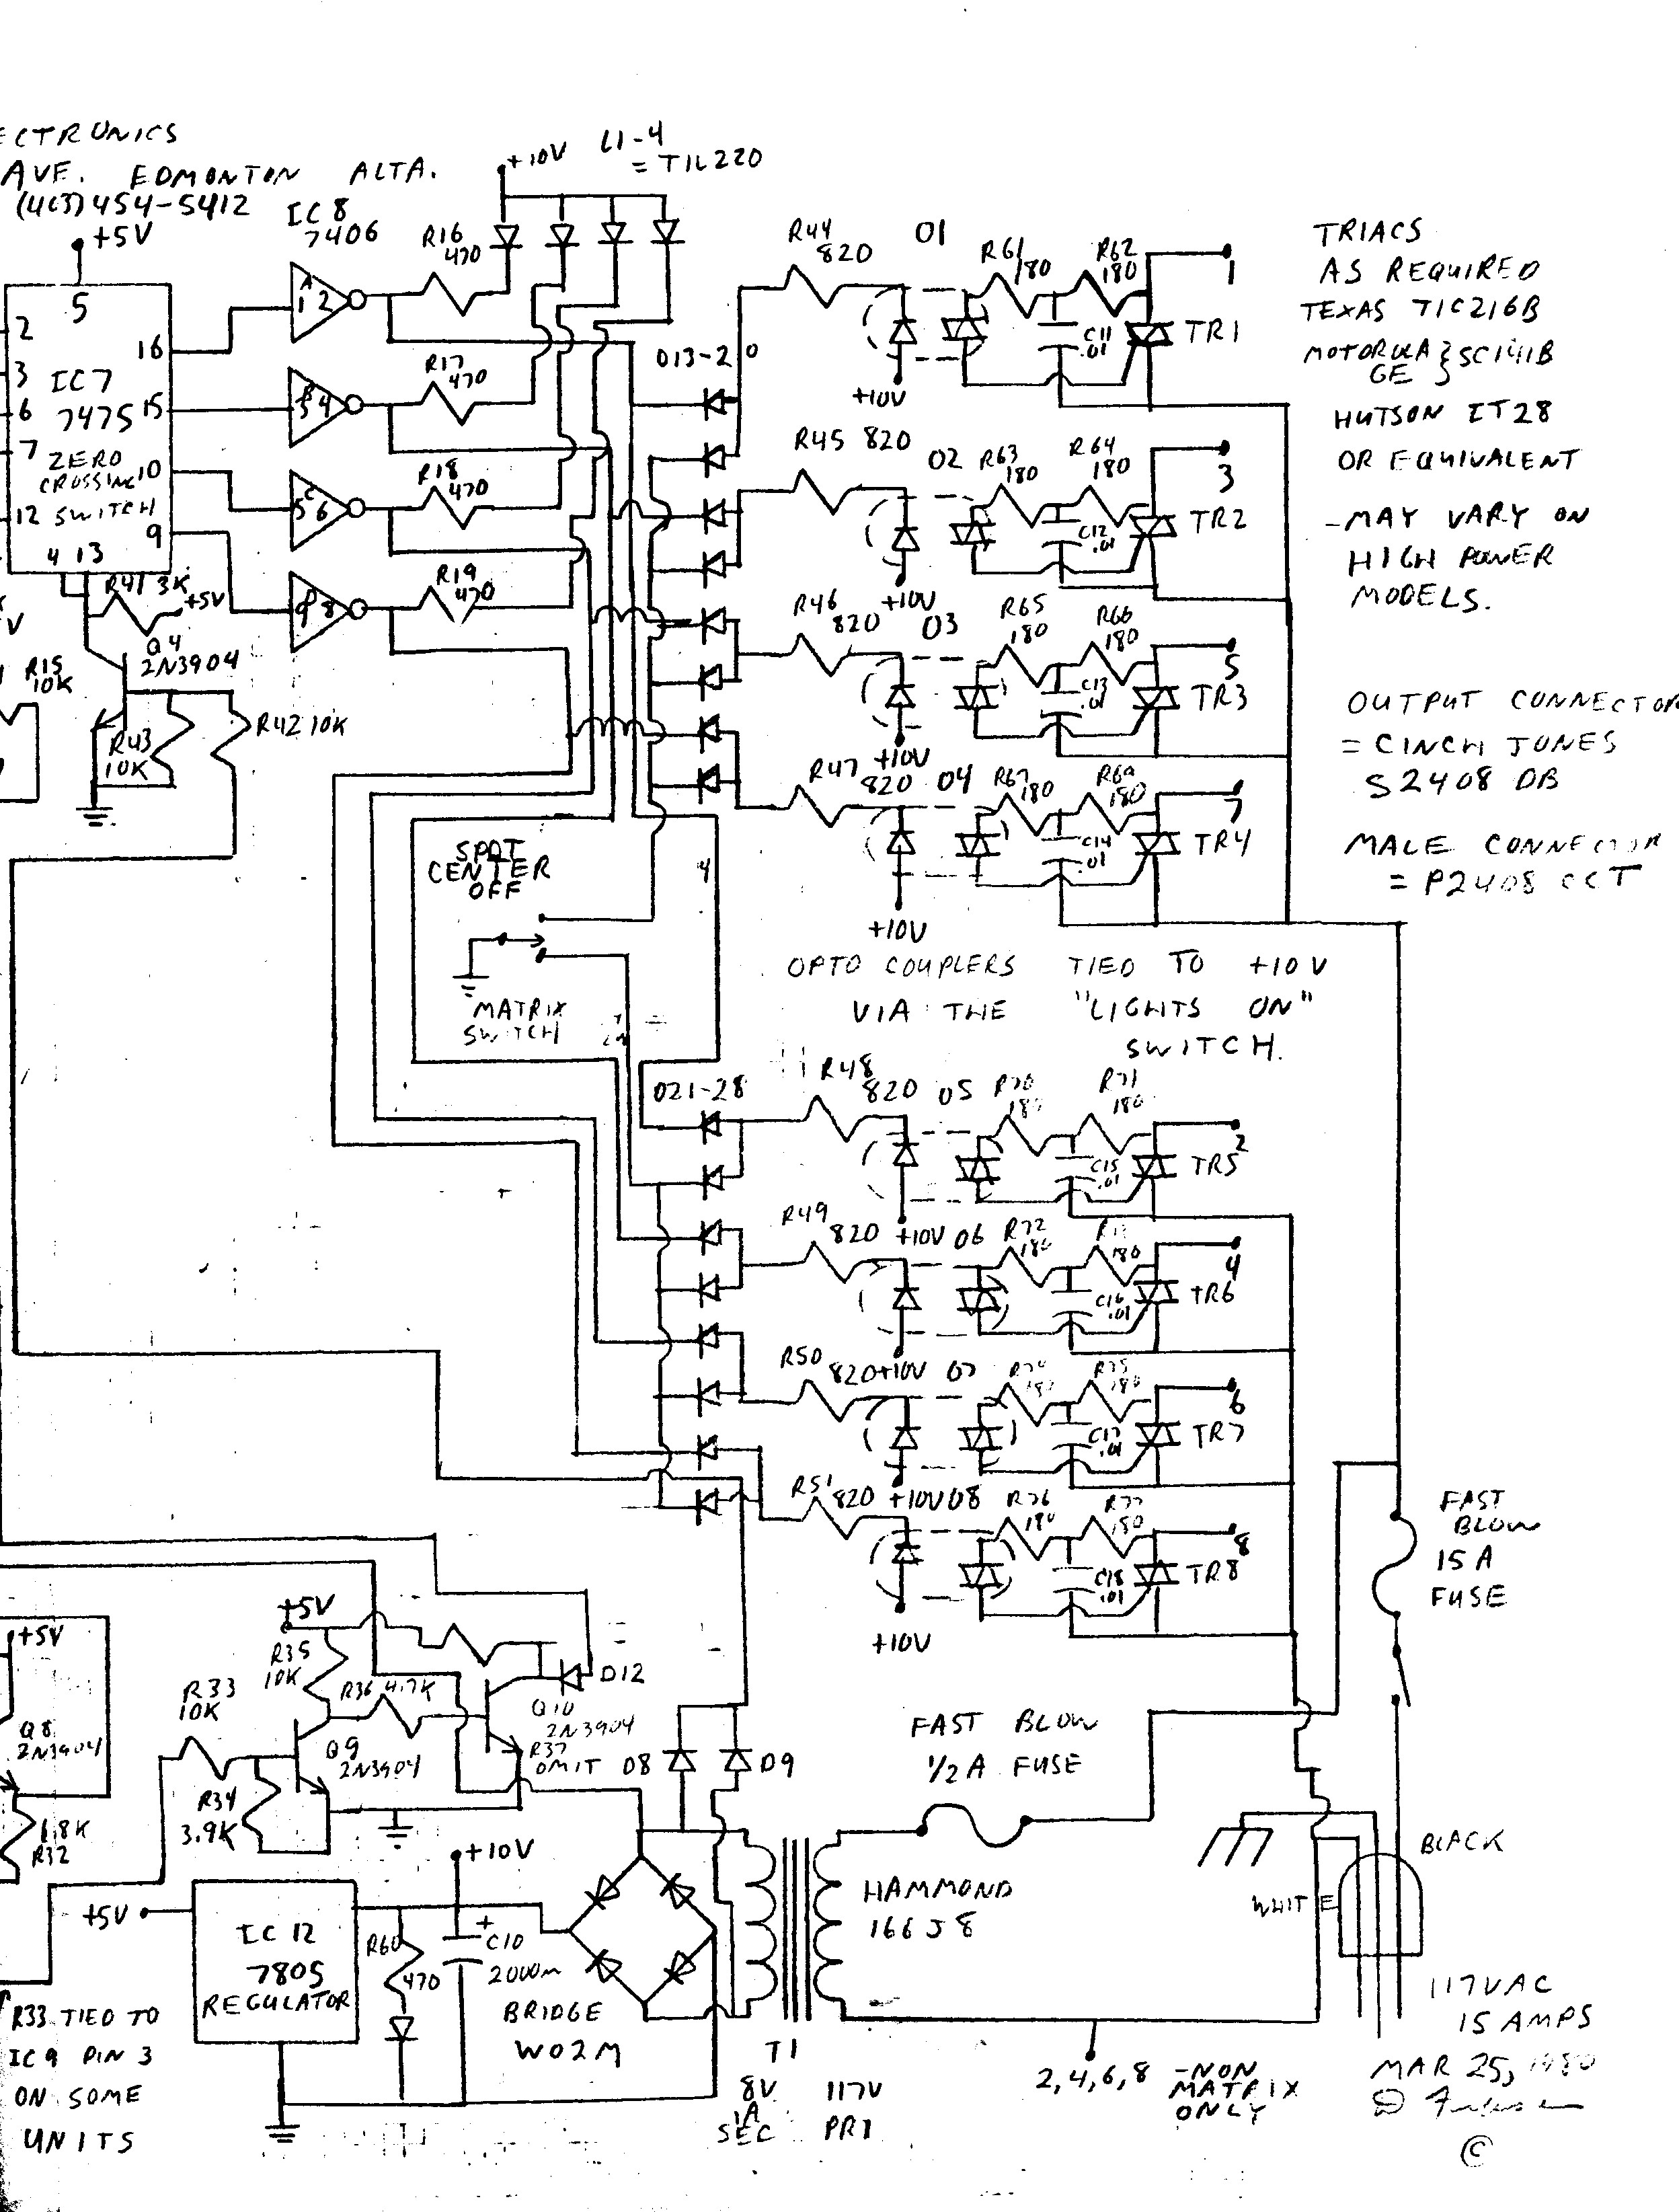 ECTRONICS
AVE. EDMONTON ALTA.
(403) 454-5412
+5V
IC8
7406
+10V
L1-4
= TIL220
5
2
3
6
7
12
4 13
16
15
10
9
IC7
7475
ZERO
CROSSING
SWITCH
1 2
3 4
5 6
9 8
R16
470
R17
470
R18
470
R19
470
R41 3K
+5V
Q4
2N3904
R15
10K
R43
10K
R42 10K
D13-20
R44
820
O1
R61
180
R62
180
C11
.01
TR1
1
+10V
R45 820
O2
R63
180
R64
180
C12
.01
TR2
3
+10V
R46
820
O3
R65
180
R66
180
C13
.01
TR3
5
+10V
R47
820
O4
R67
180
R69
180
C14
.01
TR4
7
+10V
TRIACS
AS REQUIRED
TEXAS TIC216B
MOTOROLA } SC141B
GE
HUTSON IT28
OR EQUIVALENT
-MAY VARY ON
HIGH POWER
MODELS.
OUTPUT CONNECTOR
= CINCH JONES
S2408 DB
MALE CONNECTOR
= P2408 CCT
SPDT
CENTER
OFF
4
MATRIX
SWITCH
OPTO COUPLERS TIED TO +10V
VIA THE "LIGHTS ON"
SWITCH.
D21-28
R48
820
O5
R70
180
R71
180
C15
.01
TR5
2
+10V
R49
820
O6
R72
180
180
C16
.01
TR6
4
+10V
R50
820
O7
R74
R75
180
C17
.01
TR7
6
+10V
R51
820
O8
R76
180
R77
180
C18
.01
TR8
8
+10V
FAST
BLOW
15 A
FUSE
+5V
+5V
R35
10K
R33
10K
R36 4.7K
D12
Q8
2N3904
Q9
2N3904
Q10
2N3904
R37
OMIT
D8
D9
R34
3.9K
1.8K
R32
FAST BLOW
1/2 A FUSE
BLACK
WHITE
+10V
+5V
IC 12
7805
REGULATOR
R60
470
+
C10
2000m
BRIDGE
W02M
HAMMOND
166J8
T1
8V
1A
SEC
117V
PRI
2,4,6,8 -NON
MATRIX
ONLY
117VAC
15 AMPS
MAR 25, 1980
©
R33 TIED TO
IC9 PIN 3
ON SOME
UNITS